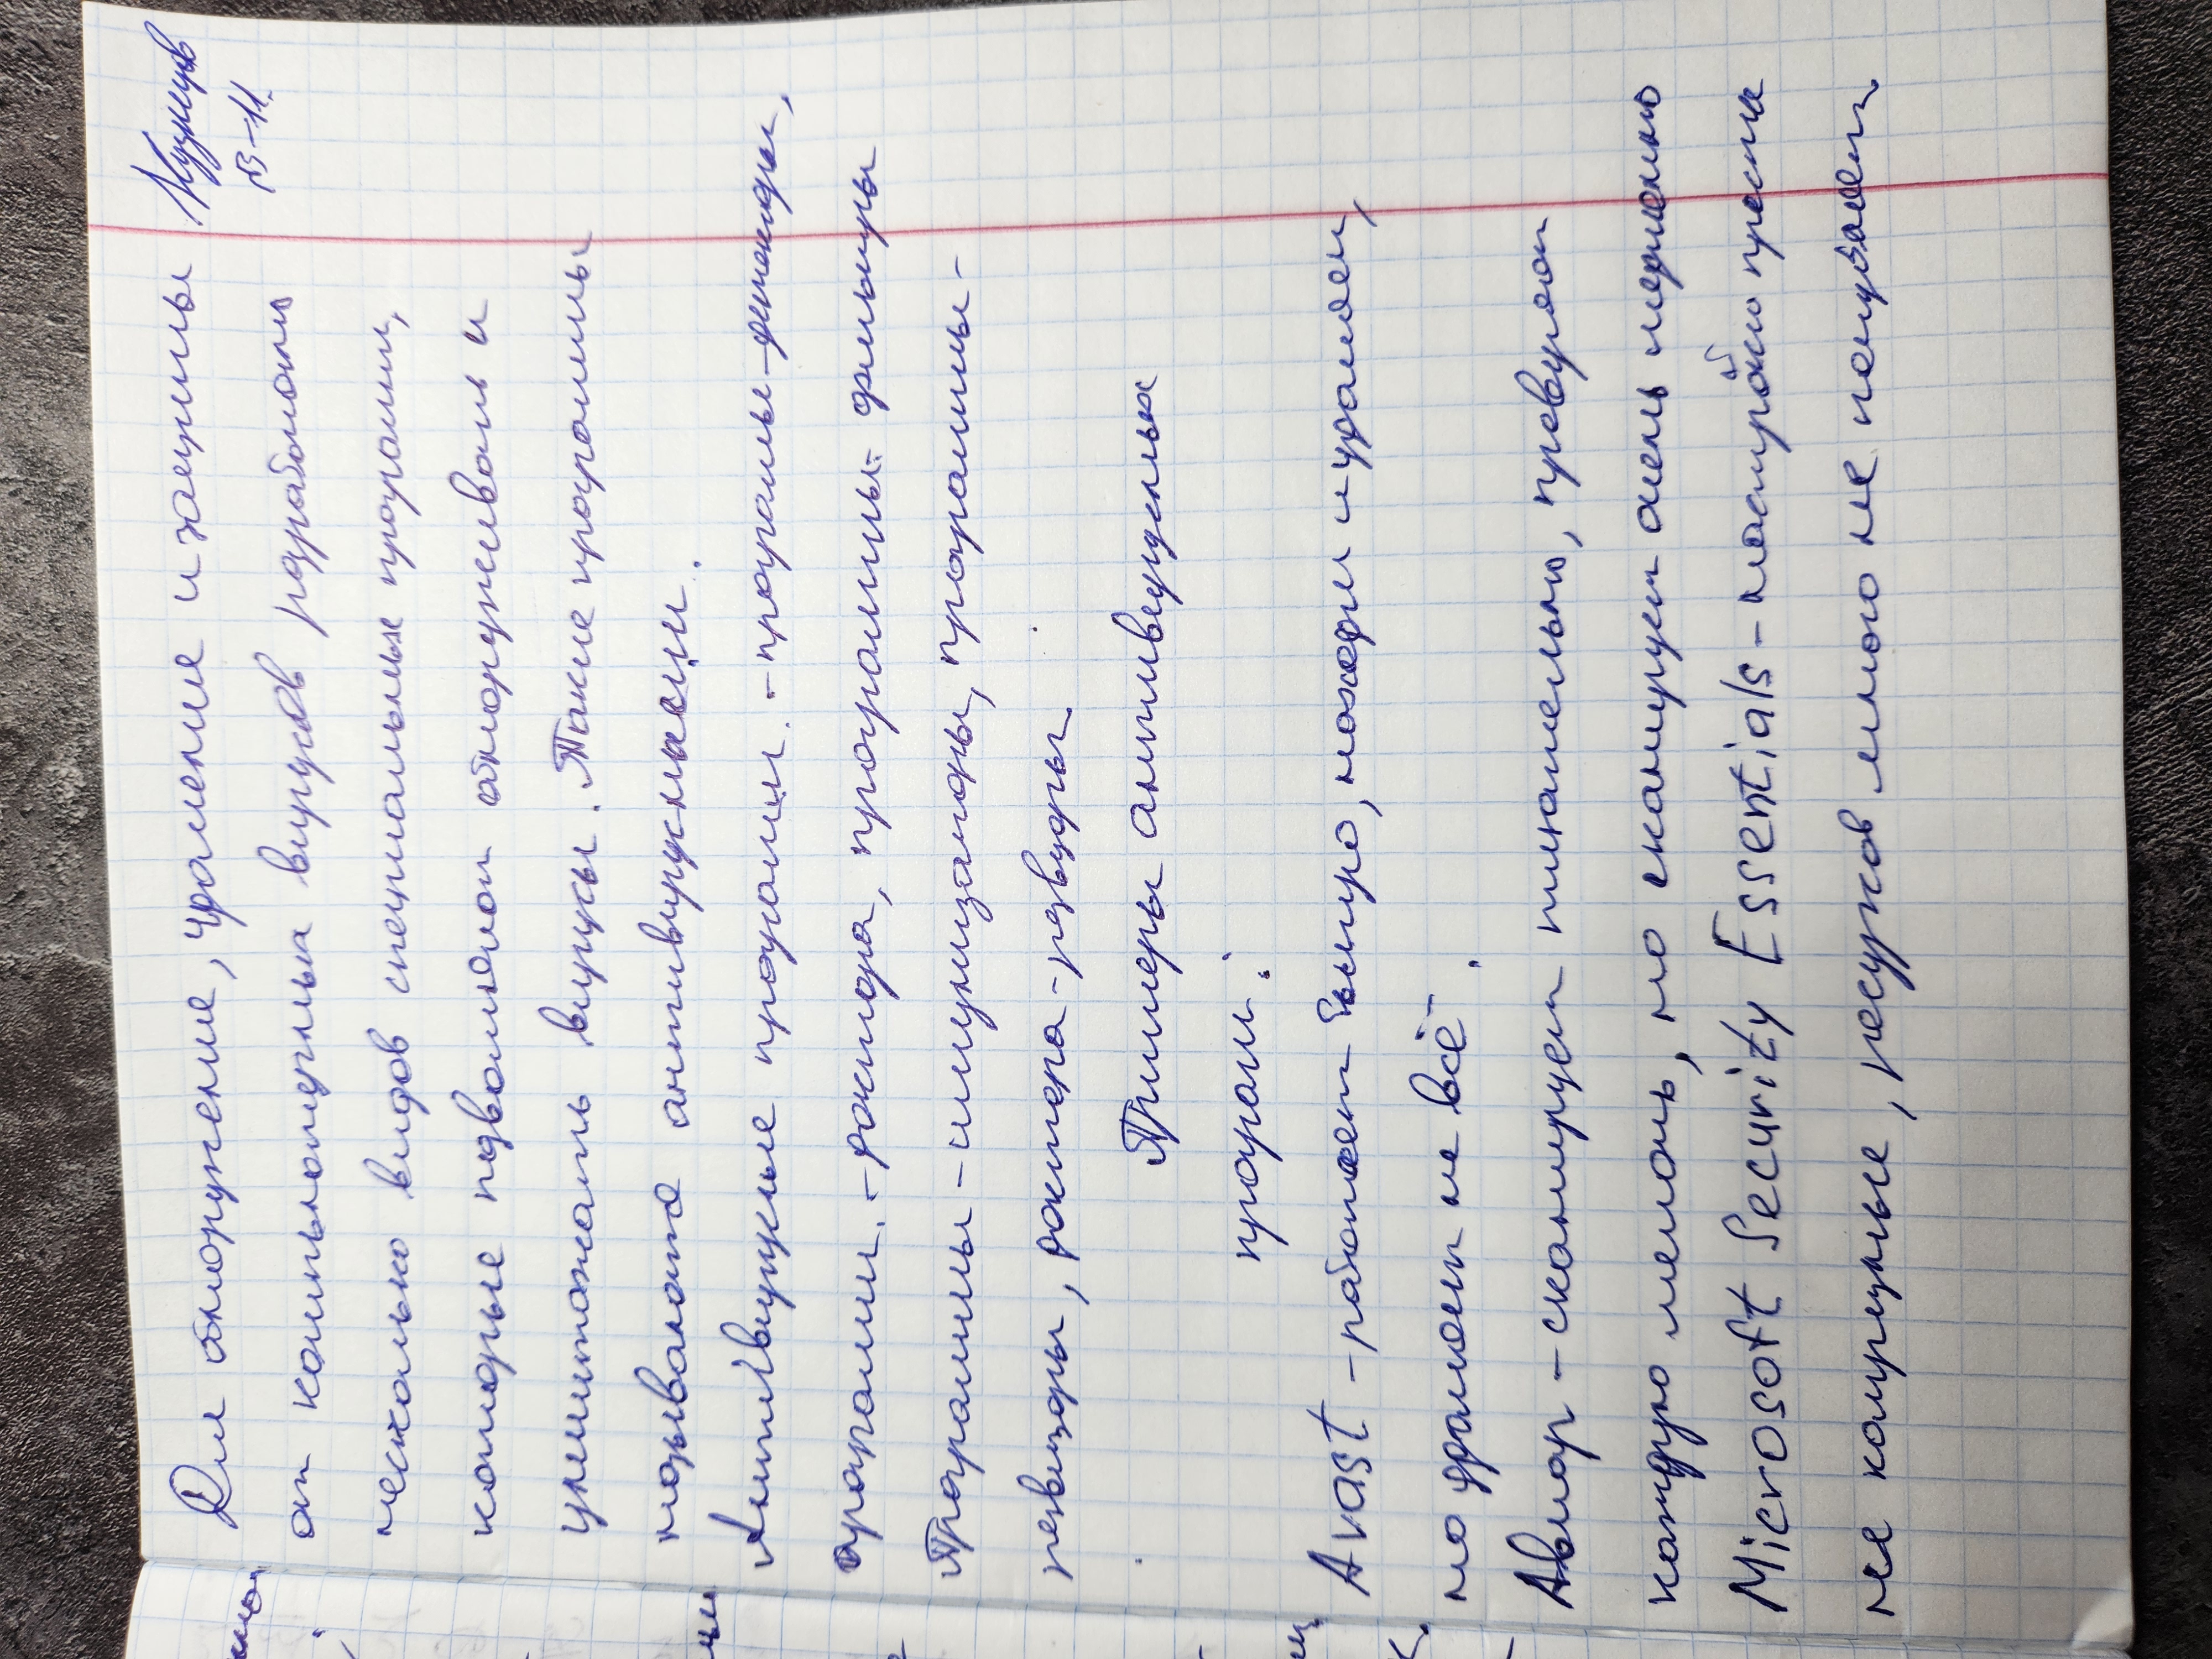 Кузнецов
В-11
Для обноружение, удоление и защиты
от компьютерных вирусов разработоли
несколько видов специольные програми,
которые подволяют обноруживать и
уничтожать вирусы. Такие програмы
называютс антивирусными.
Антивирусные програми. - програмы-детекторы,
програми. - доктора, програмы- фильтры
Програмы - имунизаторы, програмы -
ревизоры, доктора - ревизоры.
Примеры антивирусных
програм:
Avast - работает быстро, находи и удоляет,
но удоляет не всё.
Авпар - сканирует тщательно, проверяет
каждую мелочь, но сканирует очень медленно
Microsoft Security Essentials - настройки проста
не капризные, ресурсов много не потребляет